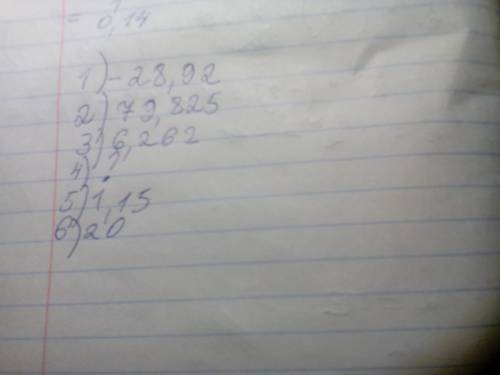 = 0,14
1) -28,92
2) 79,825
3) 6,262
4) ?
5) 1,15
6) 20